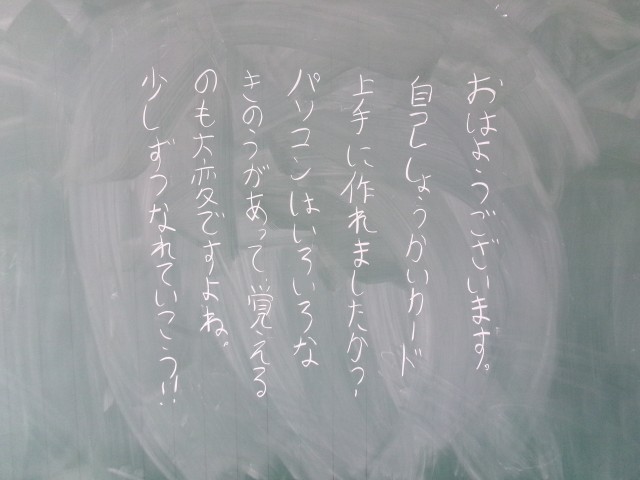 おはようございます。
自己しょうかいカード
上手に作れましたか?
パソコンはいろいろな
きのうがあって、覚える
のも大変ですよね。
少しずつなれていこう!!